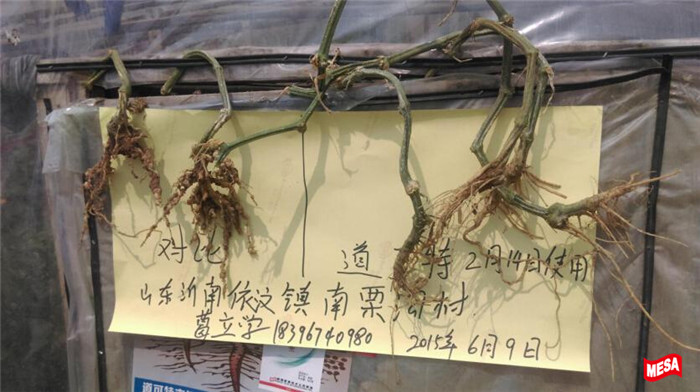 对比 道 特 2月14日使用
山东沂南依汶镇南栗沟村
葛立学 18396740980 2015年6月9日
道可特
MESA